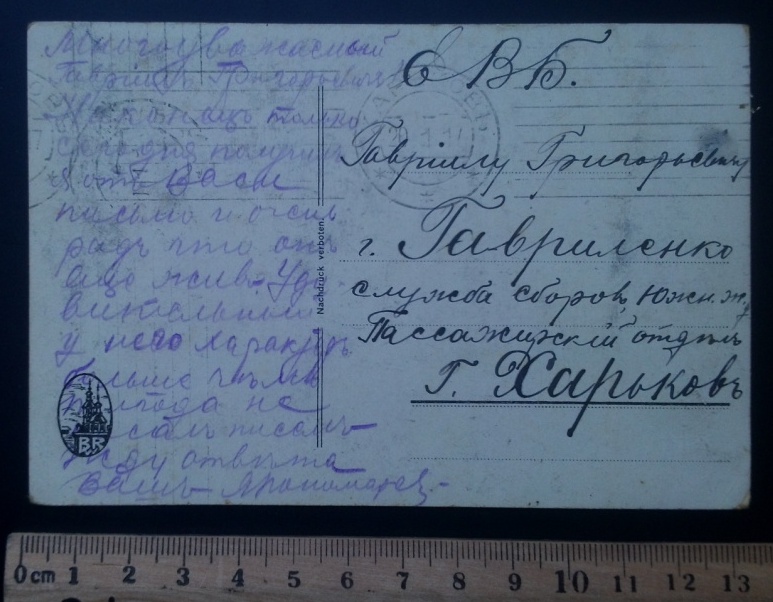 Многоуважаемый
Гавріилъ Григорьевичъ
Наконецъ только
сегодня получилъ
я отъ Васъ
письмо и очень
радъ что онъ
еще живъ. Уди
вительный
у него характеръ
больше чѣмъ
полгода не
писалъ писемъ
Жду отвѣта
Вашъ
Nachdruck verboten
BR
Е В Б.
Гавріилу Григорьевичу
г. Гавриленко
служба сборовъ Южн. ж.
Пассажирскій отдѣлъ
Г. Харьковъ
0 cm 1 2 3 4 5 6 7 8 9 10 11 12 13